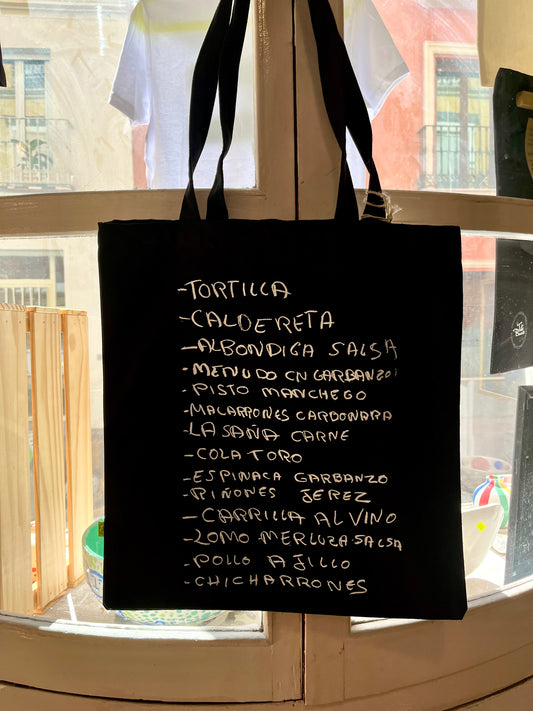 -TORTILLA
-CALDERETA
-ALBONDIGA SALSA
-MENUDO CN GARBANZO
-PISTO MANCHEGO
-MACARRONES CARBONARA
-LASAÑA CARNE
-COLA TORO
-ESPINACA GARBANZO
-RIÑONES JEREZ
-CARRILLA AL VINO
-LOMO MERLUZA SALSA
-POLLO AJILLO
-CHICHARRONES